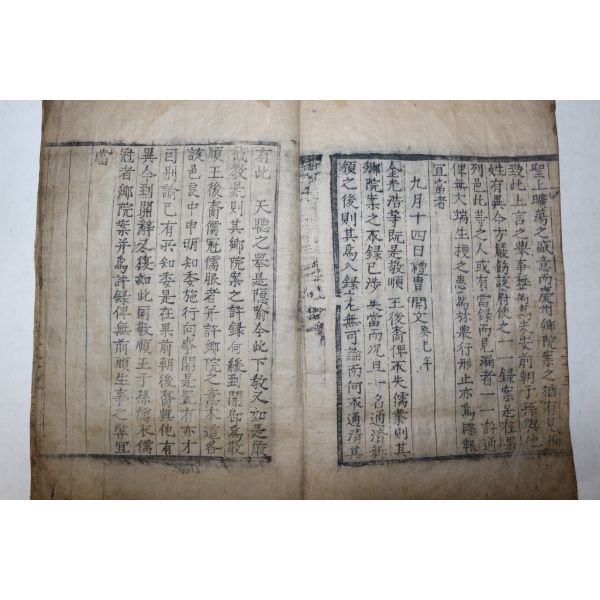 聖上曠蕩之盛意而慶州鄉院案之猶有見漏
致此上言之擧事極 前朝子孫與他
姓有異令方嚴飭該府使之一一錄案是在果
列邑此等之人或有當錄而見漏者一一許通
俾無大端生梗之患爲於擧行形止亦爲牒報
宜當者
九月十四日禮曹關文癸 年
金光浩等旣是敬順王後裔俾不失儒業則其
鄉院案之不錄已涉失當而況且 名通淸
額之後則其爲入錄尤無可論而何不通淸其
有此 天聽之擧是隱喩今此下敎又如是嚴
截敎是則其鄉院案之許錄何緩到關卽爲敬
順王後裔儒冠儒服者並許鄉院之意本道各
該邑良中申明知委施行向事關是置有亦才
因別諭已有所知委是在果前朝後裔與他有
異今到關辭 復如此同敬順王子孫儒衣儒
冠者鄉院案並爲許錄俾無前頭生事之弊宜
當